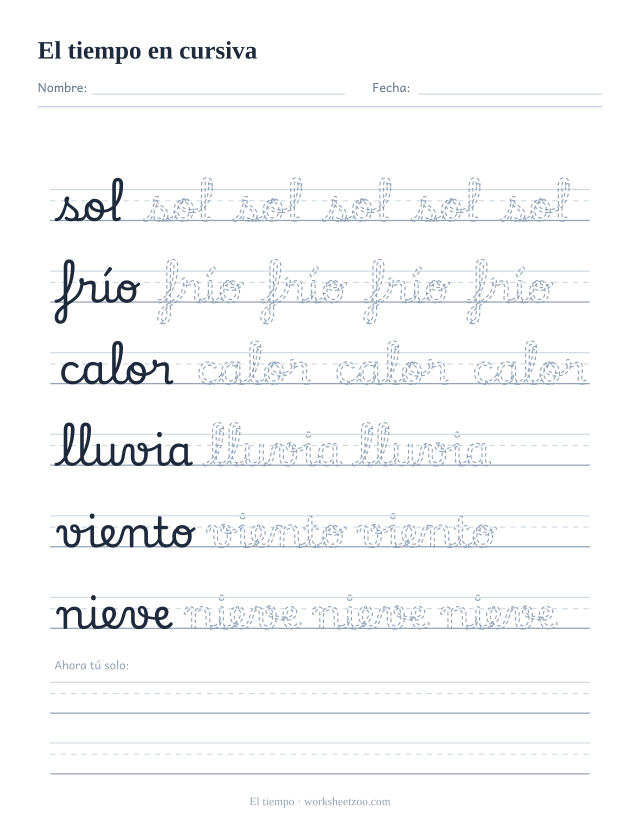 El tiempo en cursiva
Nombre: Fecha:
sol sol sol sol sol sol
frío frío frío frío frío
calor calor calor calor
lluvia lluvia lluvia
viento viento viento
nieve nieve nieve nieve
Ahora tú solo:
El tiempo · worksheetzoo.com